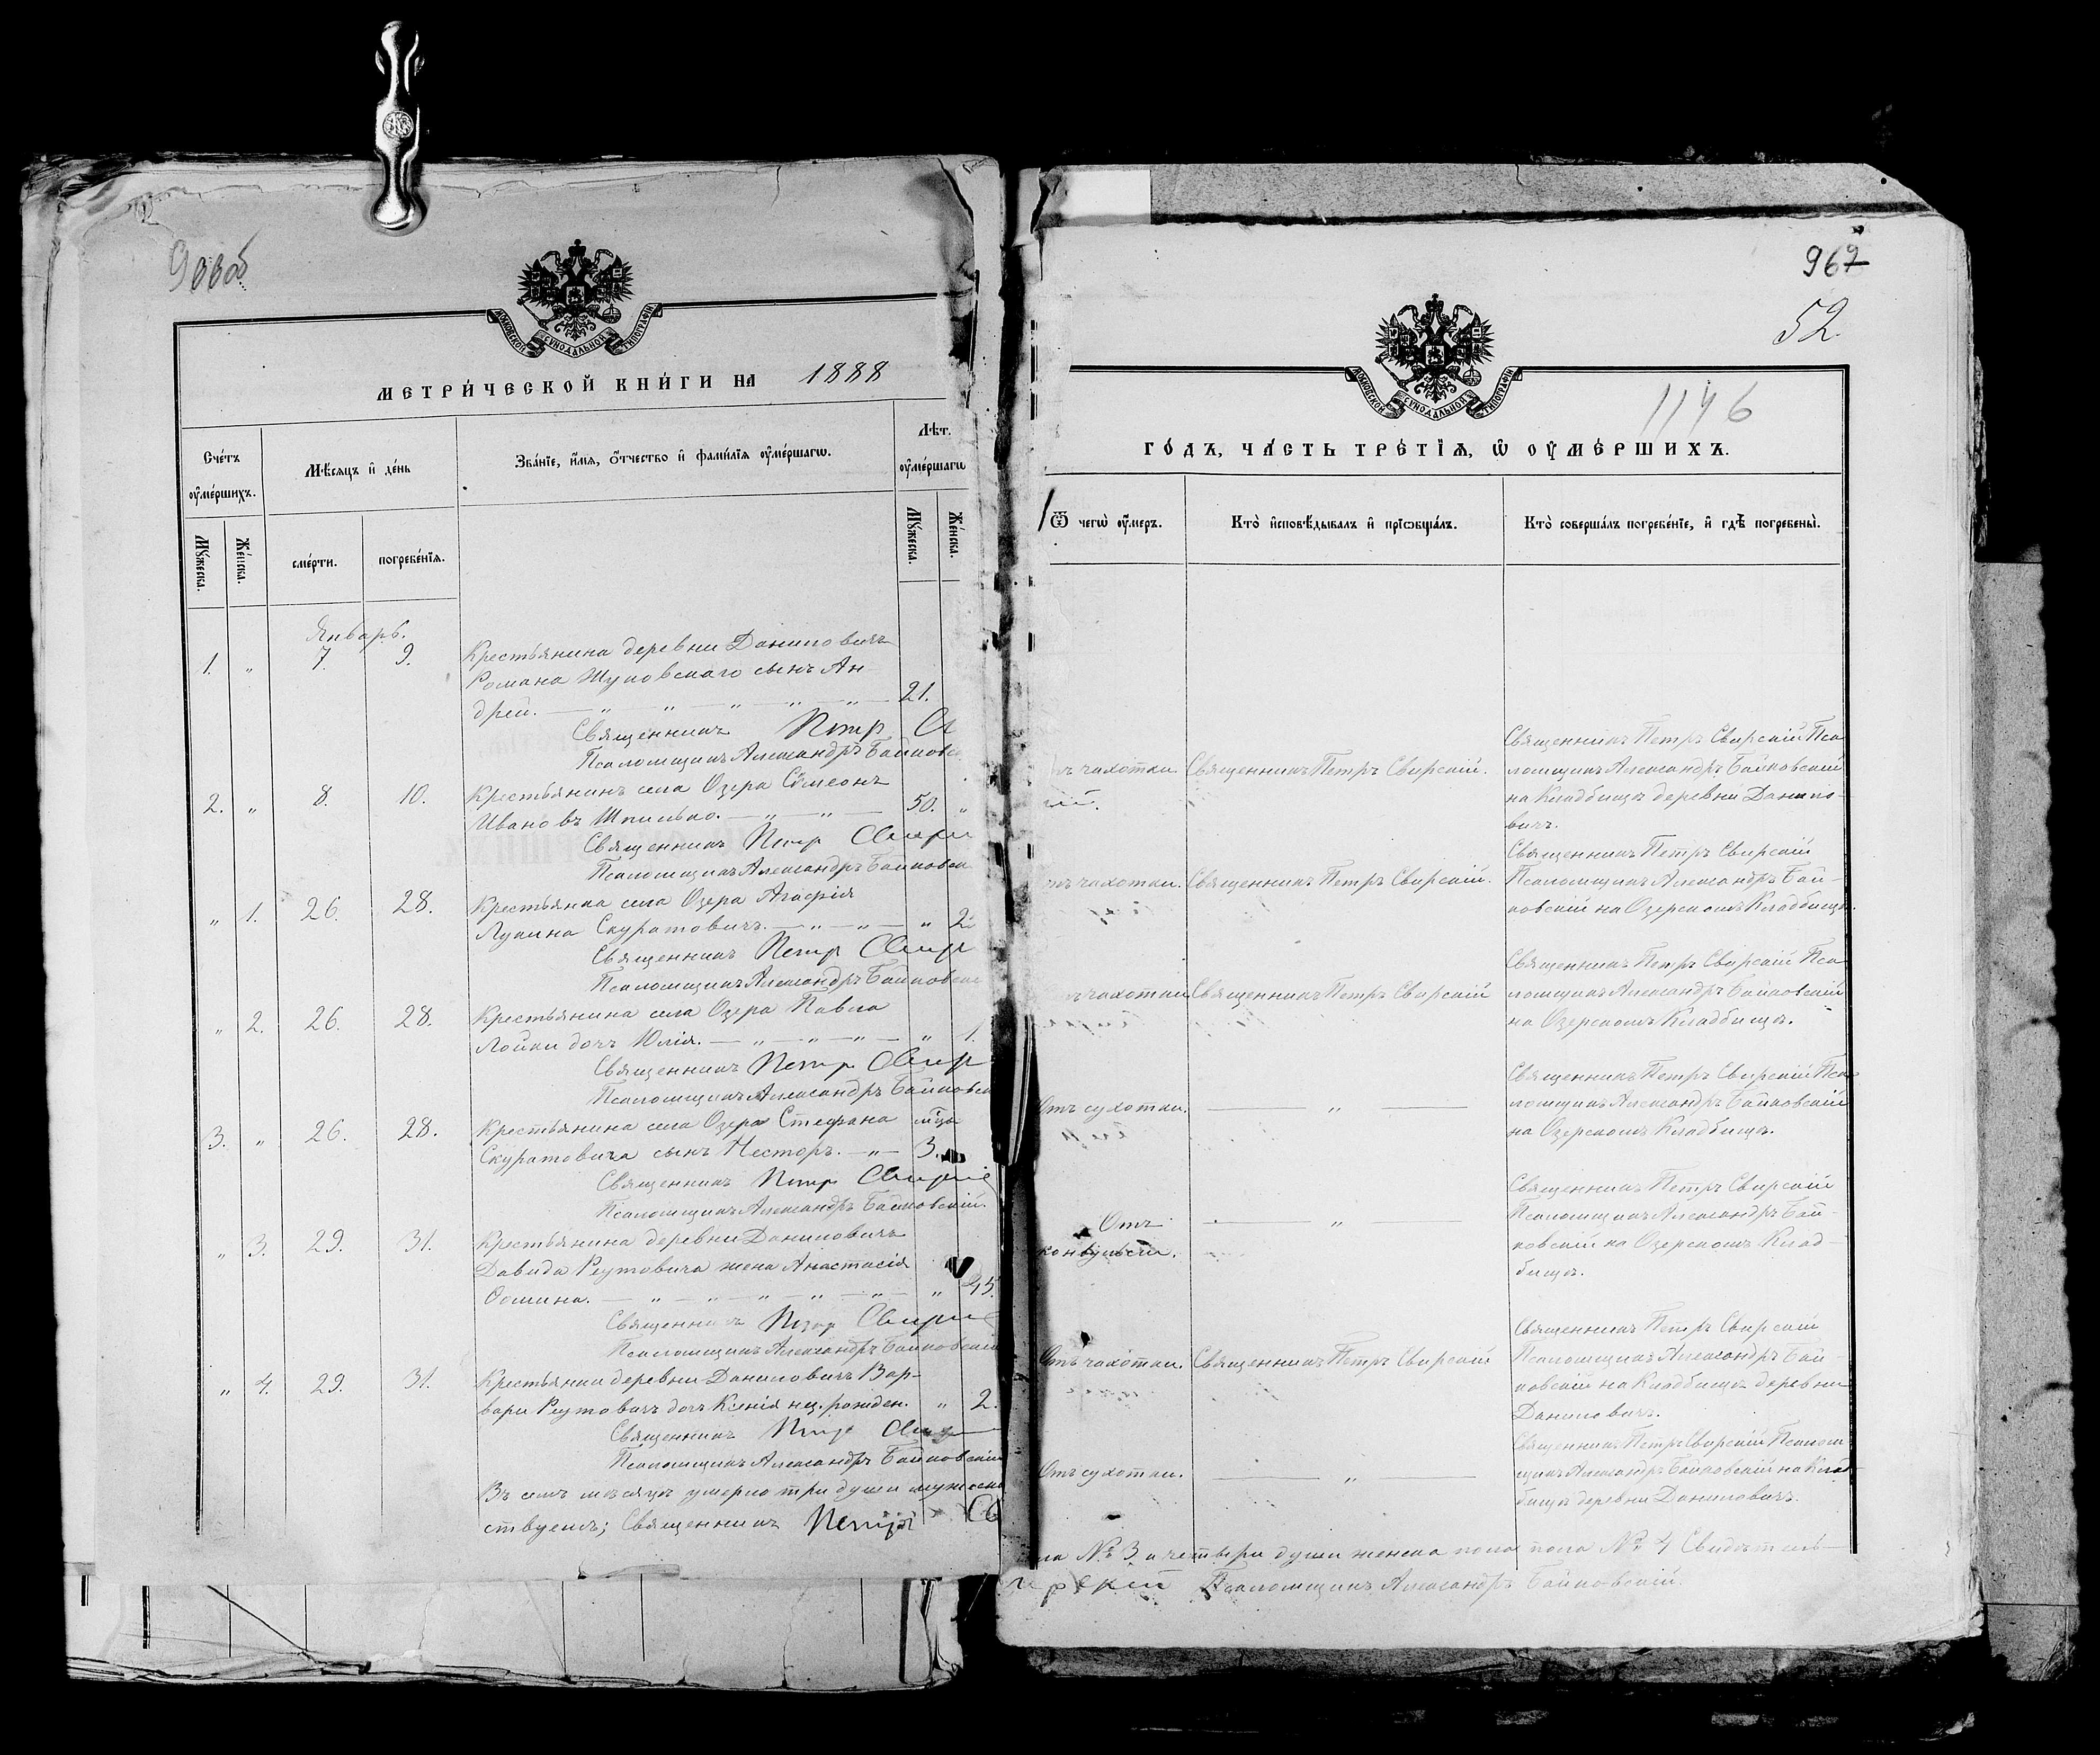 967
52
1146
МОСКОВСКОЙ СѴНОДАЛЬНОЙ ТИПОГРАФІИ
МОСКОВСКОЙ СѴНОДАЛЬНОЙ ТИПОГРАФІИ
МЕТРИ́ЧЕСКОЙ КНИ́ГИ НА 1888
ГО́ДЪ, ЧА́СТЬ ТРЕ́ТЇѦ, Ѽ ОУ҆МЕ́РШИХЪ.
Сче́тъ оу҆ме́ршихъ.
Мꙋ́жеска.
Же́нска.
Мѣ́сѧцъ и҆ де́нь
сме́рти.
погребе́нїѧ.
Зва́нїе, и҆́мѧ, ѻ҆́тчество и҆ фами́лїѧ оу҆ме́ршагѡ.
Лѣ́т.
оу҆ме́ршагѡ
Мꙋ́жеска.
Же́нска.
Ѿ чегѡ̀ оу҆́меръ.
Кто̀ и҆сповѣ́дывалъ и҆ прїѡбща́лъ.
Кто̀ соверша́лъ погребе́нїе, и҆ гдѣ̀ погребены̀.
Январь.
1. „ 7. 9. Крестьянина деревни Даниловичъ
Романа Жуковскаго сынъ Ан-
дрей. — „ — „ — „ — „ — „ — 21.
Священникъ Петр
Псаломщикъ Александръ Байковс
чахотки. Священникъ Петръ Свирскій.
Священникъ Петръ Свирскій Пса
ломщикъ Александръ Байковскій
на Кладбищѣ деревни Данило-
вичъ.
2. „ 8. 10. Крестьянинъ села Озера Сѵмеонъ
Ивановъ Шпилько. — „ — „ — 50. „
Священникъ Петр Свирс
Псаломщикъ Александръ Байковск
чахотки. Священникъ Петръ Свирскій.
Священникъ Петръ Свирскій
Псаломщикъ Александръ Бай-
ковскій на Озерскомъ Кладбищѣ.
„ 1. 26. 28. Крестьянка села Озера Агафія
Лукина Скуратовичъ. — „ — „ — „
Священникъ Петр Свир
Псаломщикъ Александръ Байковск
чахотки Священникъ Петръ Свирскій
Священникъ Петръ Свирскій Пса
ломщикъ Александръ Байковскій
на Озерскомъ Кладбищѣ.
„ 2. 26. 28. Крестьянина села Озера Павла
Лойки дочь Юлія. — „ — „ — „ — „ 1.
Священникъ Петр Свир
Псаломщикъ Александръ Байковск
Отъ сухотки. — „ —
Священникъ Петръ Свирскій Пса
ломщикъ Александръ Байковскій
на Озерскомъ Кладбищѣ.
3. „ 26. 28. Крестьянина села Озера Стефана мѣца
Скуратовича сынъ Несторъ. — „ — 3.
Священникъ Петр Свирскі
Псаломщикъ Александръ Байковскій.
Отъ
конвульсіи. — „ —
Священникъ Петръ Свирскій
Псаломщикъ Александръ Бай-
ковскій на Озерскомъ Клад-
бищѣ.
„ 3. 29. 31. Крестьянина деревни Даниловичъ
Давида Реутовича жена Анастасія
Фомина. — „ — „ — „ — „ — „ — „ 45.
Священникъ Петр Свирс
Псаломщикъ Александръ Байковскій
Отъ чахотки. Священникъ Петръ Свирскій
Священникъ Петръ Свирскій
Псаломщикъ Александръ Бай-
ковскій на Кладбищѣ деревни
Даниловичъ.
„ 4. 29. 31. Крестьянки деревни Даниловичъ Вар-
вары Реутовичъ дочь Ксенія нез. рожден. „ 2.
Священникъ Петр Свир
Псаломщикъ Александръ Байковскій
Отъ сухотки. — „ —
Священникъ Петръ Свирскій Псалом
щикъ Александръ Байковскій на Клад-
бищѣ деревни Даниловичъ.
Въ семъ мѣсяцѣ умерло три души мужеска
пола № 3 и четыри души женска пола № 4 Свидѣтель-
ствуемъ; Священникъ Петръ Свирскій Псаломщикъ Александръ Байковскій.